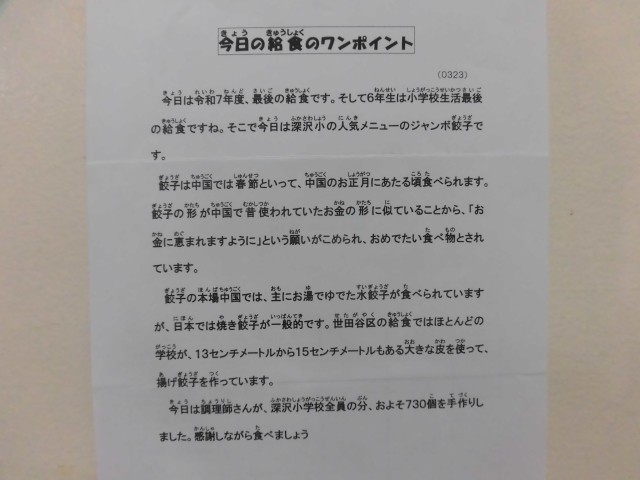 今日の給食のワンポイント
（0323）
今日は令和7年度、最後の給食です。そして6年生は小学校生活最後
の給食ですね。そこで今日は深沢小の人気メニューのジャンボ餃子で
す。
餃子は中国では春節といって、中国のお正月にあたる頃食べられます。
餃子の形が中国で昔使われていたお金の形に似ていることから、「お
金に恵まれますように」という願いがこめられ、おめでたい食べ物とされ
ています。
餃子の本場中国では、主にお湯でゆでた水餃子が食べられています
が、日本では焼き餃子が一般的です。世田谷区の給食ではほとんどの
学校が、13センチメートルから15センチメートルもある大きな皮を使って、
揚げ餃子を作っています。
今日は調理師さんが、深沢小学校全員の分、およそ730個を手作りし
ました。感謝しながら食べましょう